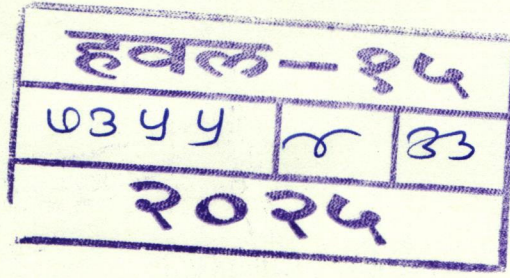 हवल-१५
७३५५ ४ ३३
२०२५